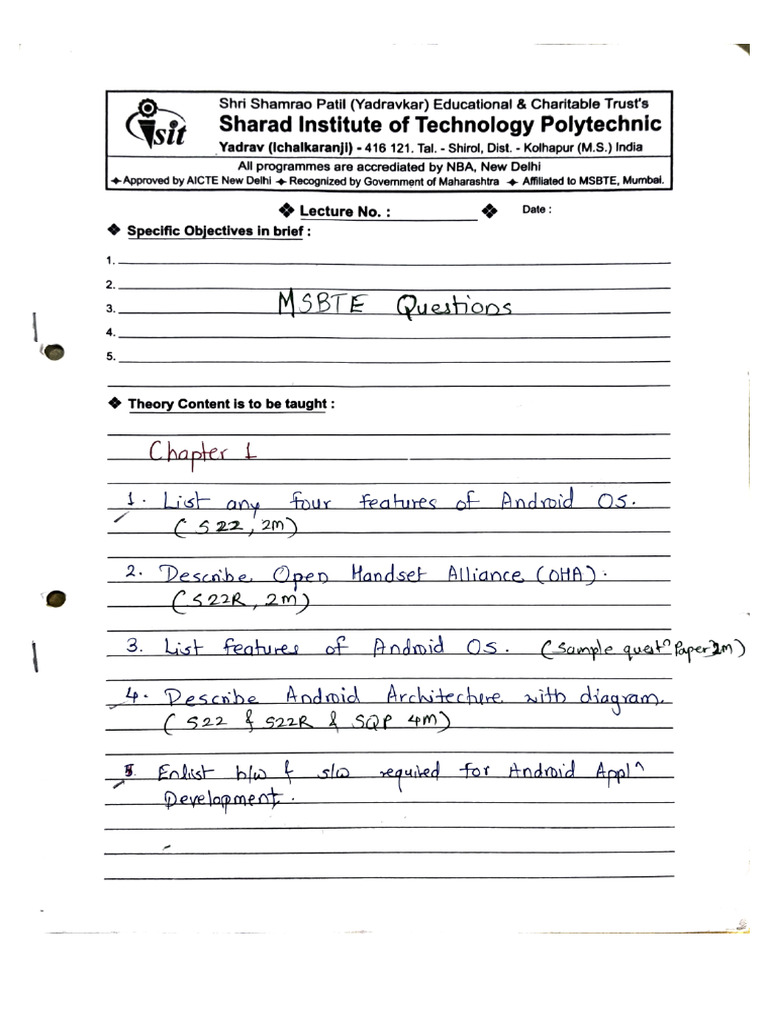 Shri Shamrao Patil (Yadravkar) Educational & Charitable Trust's
Sharad Institute of Technology Polytechnic
Yadrav (Ichalkaranji) - 416 121. Tal. - Shirol, Dist. - Kolhapur (M.S.) India
All programmes are accrediated by NBA, New Delhi
Approved by AICTE New Delhi Recognized by Government of Maharashtra Affiliated to MSBTE, Mumbai.
sit
❖ Lecture No. : ❖ Date :
❖ Specific Objectives in brief :
1.
2.
MSBTE Questions
3.
4.
5.
❖ Theory Content is to be taught :
Chapter 1
1. List any four features of Android OS.
(S22, 2M)
2. Describe Open Handset Alliance (OHA).
(S22R, 2M)
3. List features of Android OS. (Sample quest^n Paper 2M)
4. Describe Android Architechere with diagram.
(S22 & S22R & SQP 4M)
5. Enlist h/w & s/w required for Android Appl^n
Development.